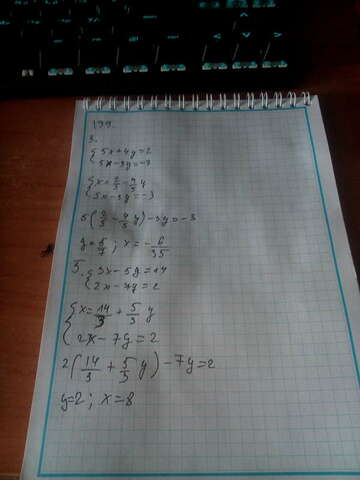 199.
3.
{5x+4y=2
5x-3y=-3
{x=2/5-4/5y
5x-3y=-3
5(2/5-4/5y)-3y=-3
y=5/7; x=-6/35
5. {3x-5y=14
2x-7y=2
{x=14/3+5/3y
2x-7y=2
2(14/3+5/3y)-7y=2
y=2; x=8